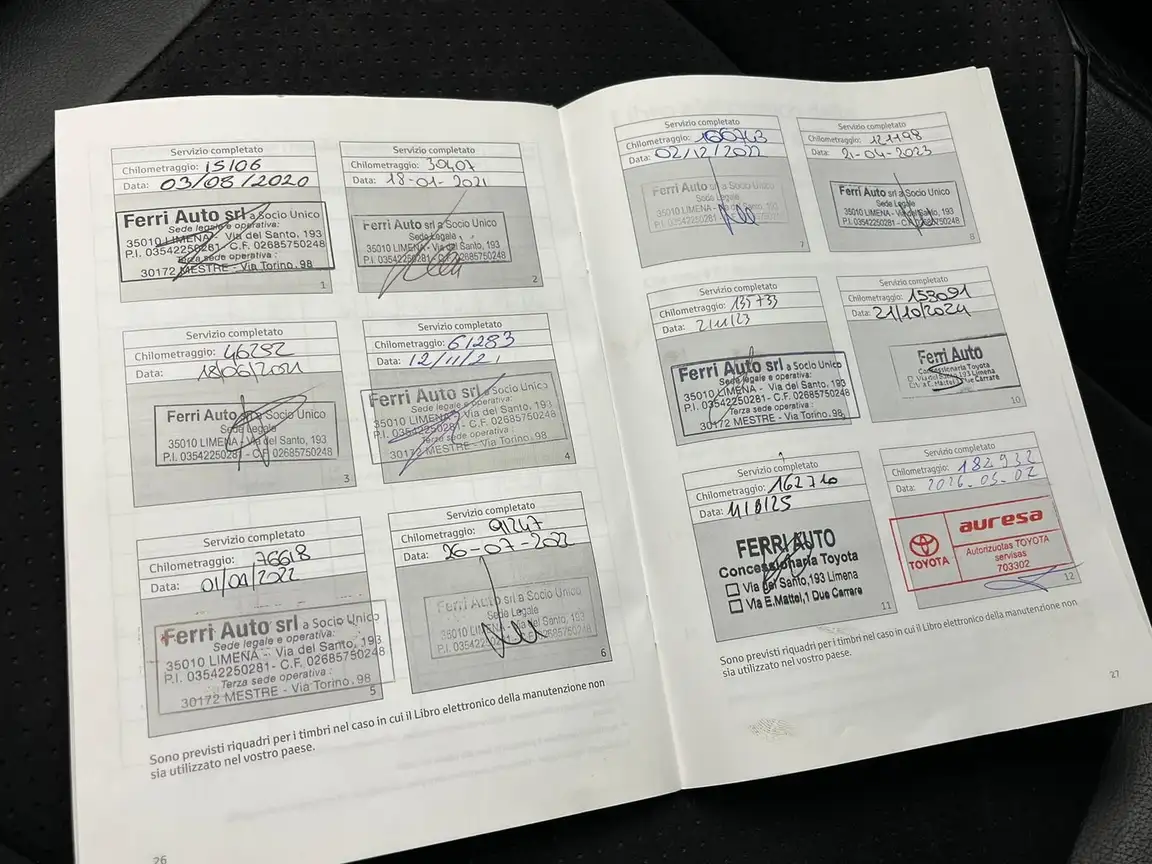 Servizio completato
Chilometraggio: 15106
Data: 03/08/2020
Ferri Auto srl a Socio Unico
Sede legale e operativa:
35010 LIMENA - Via del Santo, 193
P.I. 03542250281 - C.F. 02685750248
Terza sede operativa:
30172 MESTRE - Via Torino, 98
1
Servizio completato
Chilometraggio: 30407
Data: 18-01-2021
Ferri Auto srl a Socio Unico
Sede Legale
35010 LIMENA - Via del Santo, 193
P.I. 03542250281 - C.F. 02685750248
2
Servizio completato
Chilometraggio: 46252
Data: 18/06/2021
Ferri Auto srl a Socio Unico
Sede Legale
35010 LIMENA - Via del Santo, 193
P.I. 03542250281 - C.F. 02685750248
3
Servizio completato
Chilometraggio: 61283
Data: 12/11/21
Ferri Auto srl a Socio Unico
Sede legale e operativa:
35010 LIMENA - Via del Santo, 193
P.I. 03542250281 - C.F. 02685750248
Terza sede operativa:
30172 MESTRE - Via Torino, 98
4
Servizio completato
Chilometraggio: 76618
Data: 01/04/2022
Ferri Auto srl a Socio Unico
Sede legale e operativa:
35010 LIMENA - Via del Santo, 193
P.I. 03542250281 - C.F. 02685750248
Terza sede operativa:
30172 MESTRE - Via Torino, 98
5
Servizio completato
Chilometraggio: 91247
Data: 26-07-2022
Ferri Auto srl a Socio Unico
Sede Legale
35010 LIMENA - Via del Santo, 193
P.I. 03542250281 - C.F. 02685750248
6
Sono previsti riquadri per i timbri nel caso in cui il Libro elettronico della manutenzione non
sia utilizzato nel vostro paese.
26
Servizio completato
Chilometraggio:
Data: 02/12/2022
Ferri Auto srl a Socio Unico
Sede Legale
35010 LIMENA - Via del Santo, 193
P.I. 03542250281 - C.F. 02685750248
7
Servizio completato
Chilometraggio: 121198
Data: 21-04-2023
Ferri Auto srl a Socio Unico
Sede Legale
35010 LIMENA - Via del Santo, 193
P.I. 03542250281 - C.F. 02685750248
8
Servizio completato
Chilometraggio: 135733
Data: 2/11/23
Ferri Auto srl a Socio Unico
Sede legale e operativa:
35010 LIMENA - Via del Santo, 193
P.I. 03542250281 - C.F. 02685750248
Terza sede operativa:
30172 MESTRE - Via Torino, 98
9
Servizio completato
Chilometraggio: 153091
Data: 21/10/2024
Ferri Auto
Concessionaria Toyota
Via del Santo,193 Limena
Via E.Mattei,1 Due Carrare
10
Servizio completato
Chilometraggio: 162710
Data:
FERRI AUTO
Concessionaria Toyota
Via del Santo,193 Limena
Via E.Mattei,1 Due Carrare
11
Servizio completato
Chilometraggio: 182932
Data: 2026.03.02
TOYOTA
auresa
Autorizuotas TOYOTA
servisas
703302
12
Sono previsti riquadri per i timbri nel caso in cui il Libro elettronico della manutenzione non
sia utilizzato nel vostro paese.
27